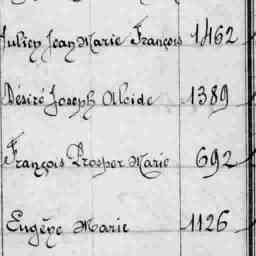 Julien Jean Marie François 1462
Désiré Joseph Alcide 1389
François Prosper Marie 692
Eugène Marie 1126